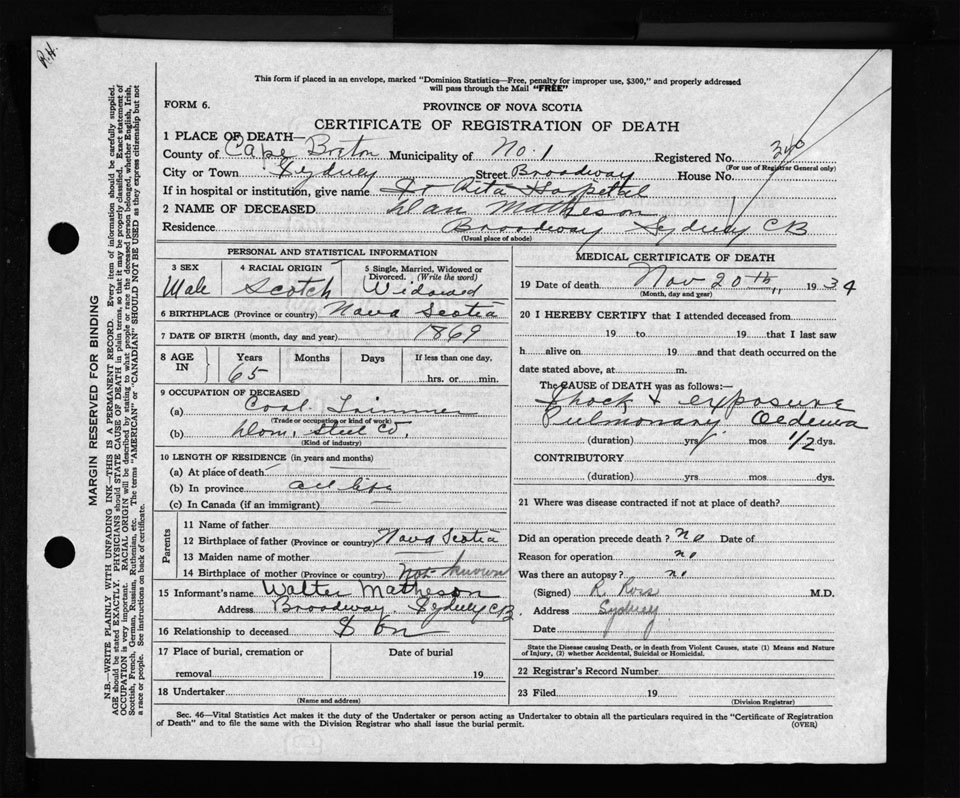 R.H.
This form if placed in an envelope, marked "Dominion Statistics—Free, penalty for improper use, $300," and properly addressed
will pass through the Mail "FREE"
FORM 6.
PROVINCE OF NOVA SCOTIA
CERTIFICATE OF REGISTRATION OF DEATH
1 PLACE OF DEATH—
County of Cape Breton Municipality of No. 1 Registered No. 240
(For use of Registrar General only)
City or Town Sydney Street Broadway House No.
If in hospital or institution, give name St Rita Hospital
2 NAME OF DECEASED Dan Matheson
Residence Broadway Sydney CB
(Usual place of abode)
PERSONAL AND STATISTICAL INFORMATION
3 SEX 4 RACIAL ORIGIN 5 Single, Married, Widowed or Divorced. (Write the word)
Male Scotch Widowed
6 BIRTHPLACE (Province or country) Nova Scotia
7 DATE OF BIRTH (month, day and year) 1869
8 AGE IN Years Months Days If less than one day,
65 hrs. or min.
9 OCCUPATION OF DECEASED
(a) Coal Trimmer
(Trade or occupation or kind of work)
(b) Dom. Steel Co.
(Kind of industry)
10 LENGTH OF RESIDENCE (in years and months)
(a) At place of death
(b) In province all life
(c) In Canada (if an immigrant)
Parents
11 Name of father
12 Birthplace of father (Province or country) Nova Scotia
13 Maiden name of mother
14 Birthplace of mother (Province or country) Not known
15 Informant's name Walter Matheson
Address Broadway. Sydney CB.
16 Relationship to deceased Son
17 Place of burial, cremation or removal Date of burial 19
18 Undertaker
(Name and address)
MEDICAL CERTIFICATE OF DEATH
19 Date of death Nov 20th 1934
(Month, day and year)
20 I HEREBY CERTIFY that I attended deceased from
19 to 19 that I last saw
h alive on 19 and that death occurred on the
date stated above, at m.
The CAUSE of DEATH was as follows:—
Shock & exposure
Pulmonary Oedema
(duration) yrs mos 1/2 dys.
CONTRIBUTORY
(duration) yrs mos. dys.
21 Where was disease contracted if not at place of death?
Did an operation precede death? no Date of
Reason for operation no
Was there an autopsy? no
(Signed) R. Ross M.D.
Address Sydney
Date
State the Disease causing Death, or in death from Violent Causes, state (1) Means and Nature
of Injury, (2) whether Accidental, Suicidal or Homicidal.
22 Registrar's Record Number
23 Filed 19
(Division Registrar)
Sec. 46—Vital Statistics Act makes it the duty of the Undertaker or person acting as Undertaker to obtain all the particulars required in the "Certificate of Registration
of Death" and to file the same with the Division Registrar who shall issue the burial permit. (OVER)
MARGIN RESERVED FOR BINDING
N.B.—WRITE PLAINLY WITH UNFADING INK—THIS IS A PERMANENT RECORD. Every item of information should be carefully supplied.
AGE should be stated EXACTLY. PHYSICIANS should STATE CAUSE OF DEATH in plain terms, so that it may be properly classified. Exact statement of
OCCUPATION is very important. RACIAL ORIGIN will be described by stating to what people or race the deceased person belonged, whether English, Irish,
Scottish, French, German, Russian, Ruthenian, etc. The terms "AMERICAN" or "CANADIAN" SHOULD NOT BE USED as they express citizenship but not
a race or people. See instructions on back of certificate.